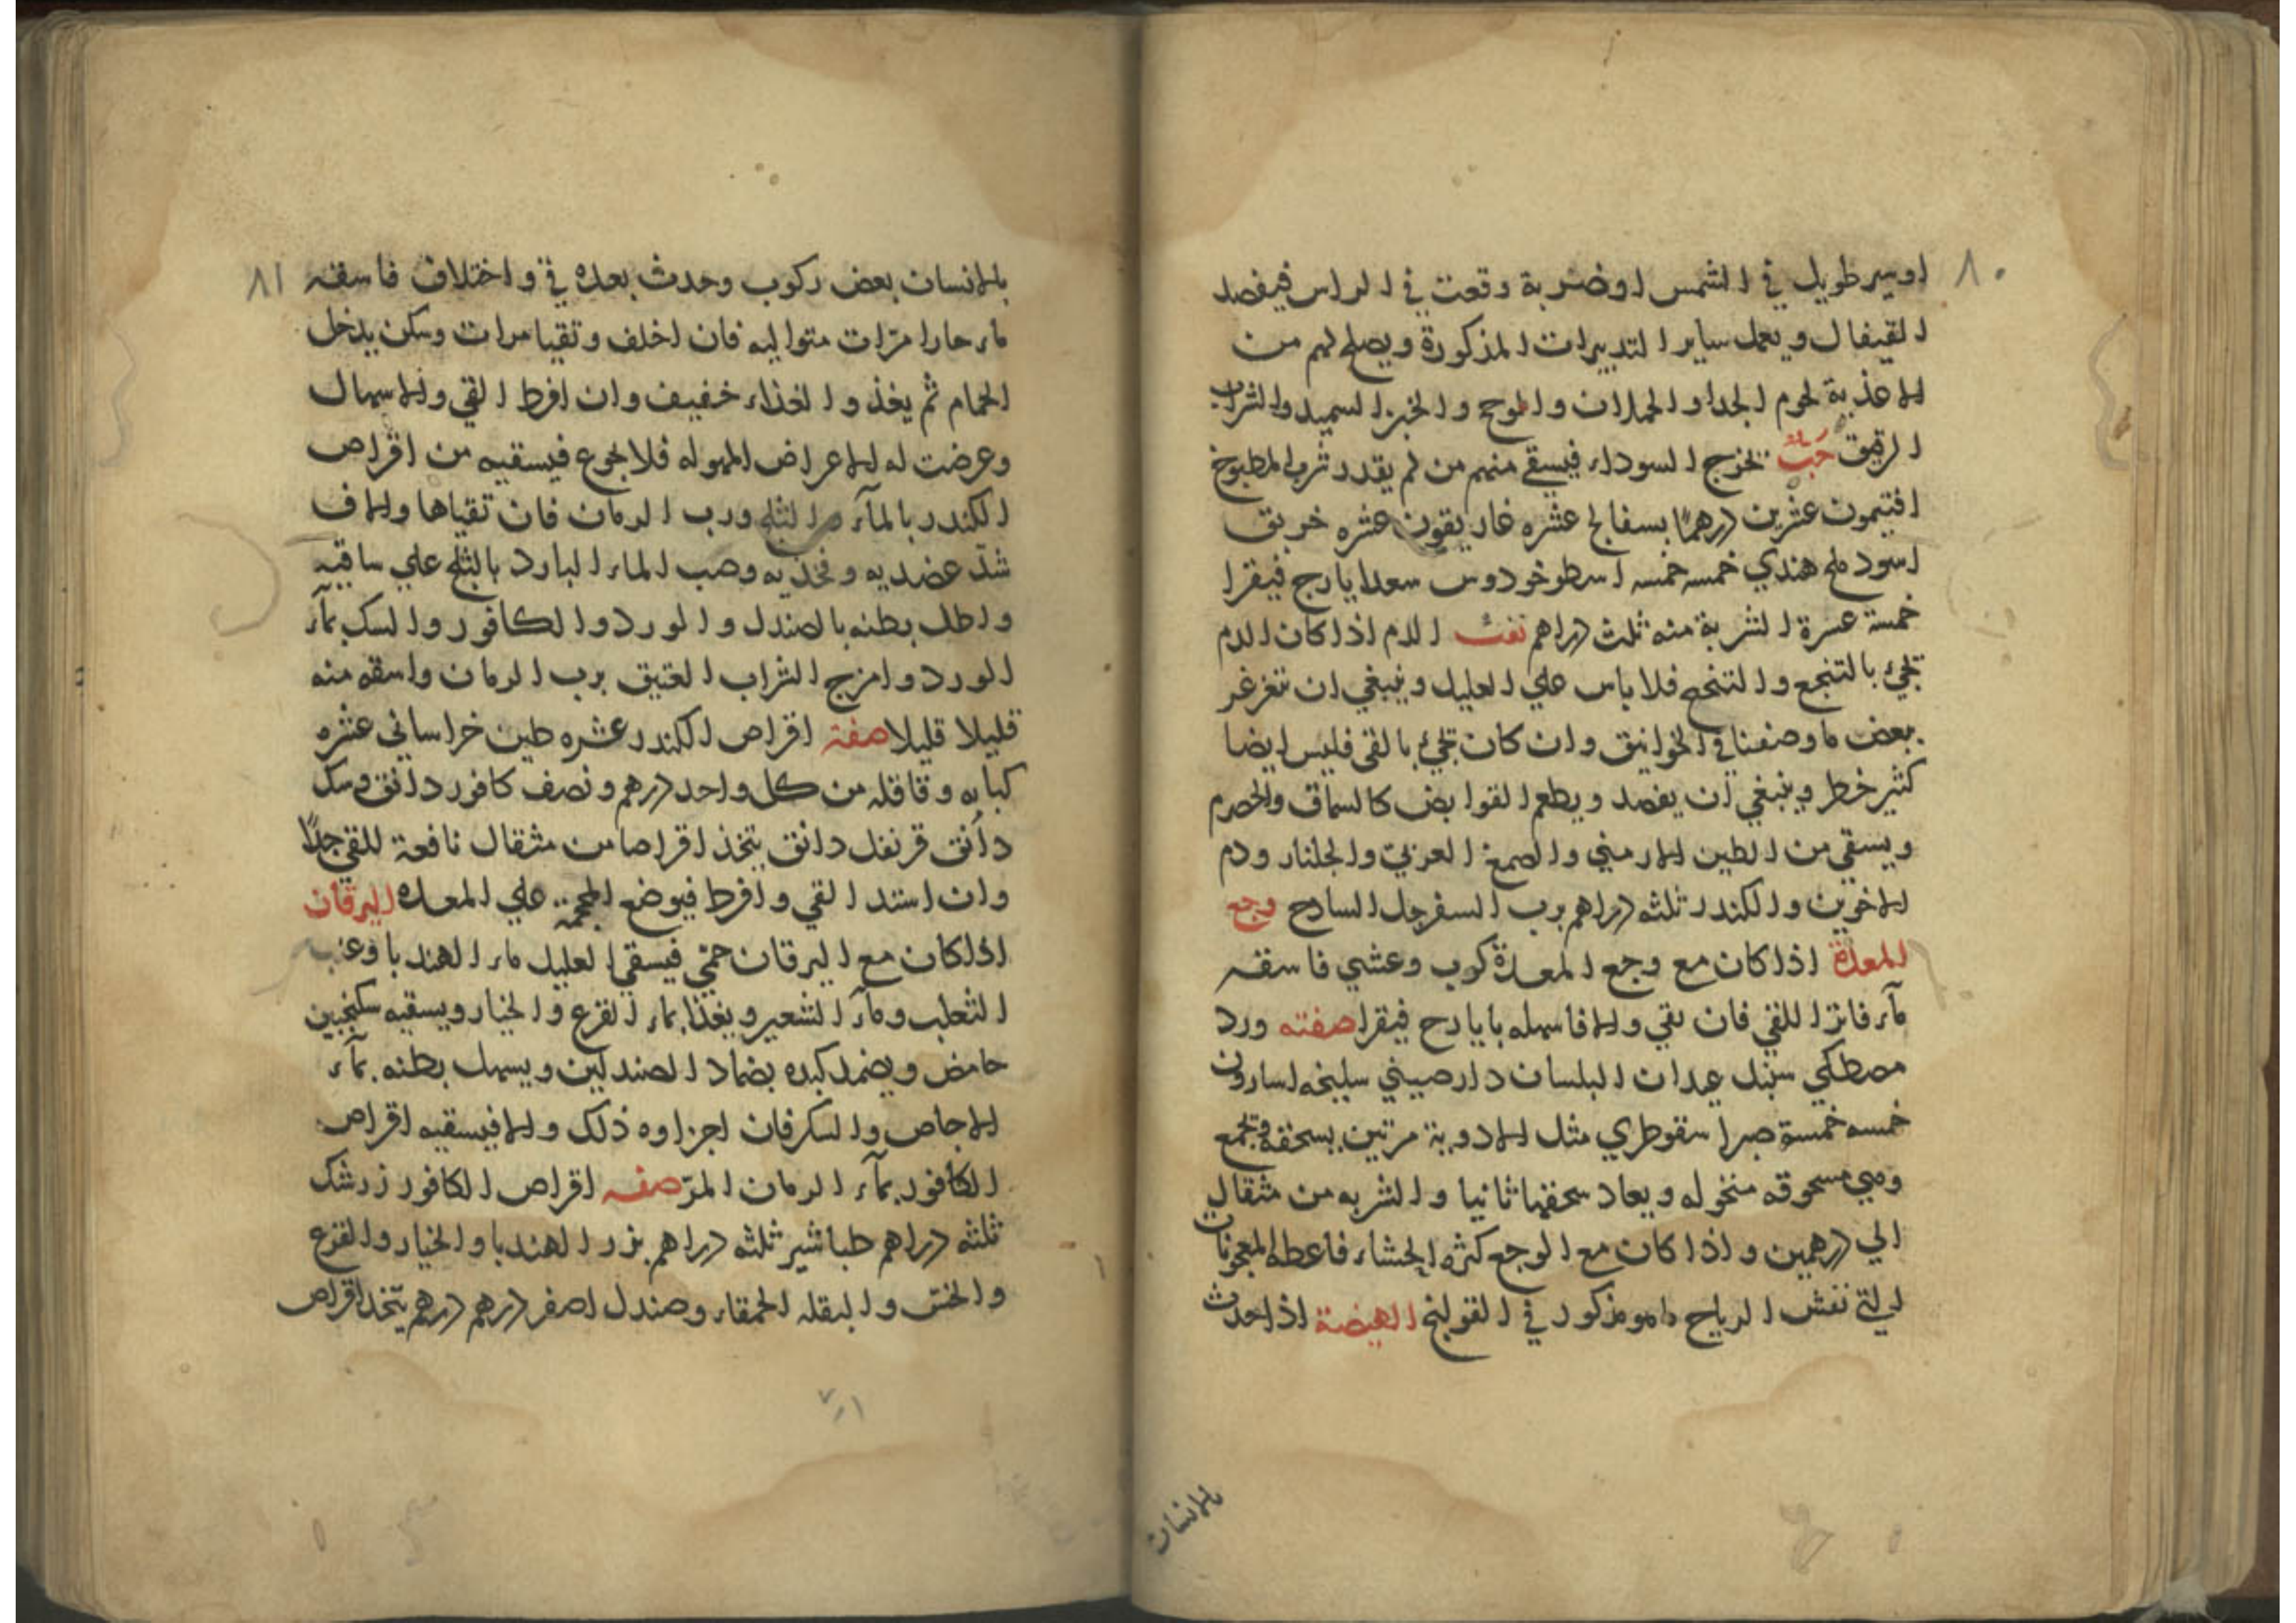 ٨٠
او سير طويل في الشمس او ضربة وقعت في الراس فيفصد
القيفال ويعمل ساير التدبيرات المذكورة ويصلح لهم من
الاغذية لحوم الجدا والحملان والخبز السميد والشراب
الرقيق حب يخرج السوداء فيسقي منهم من لم يقدر شرب المطبوخ
افتيمون عشرين درهما بسفالج عشره غاريقون عشره خربق
اسود ملح هندي خمسه خمسه اسطوخودوس سعد ايارج فيقرا
خمسة عسرة الشربة منه ثلث دراهم نفث الدم اذا كان الدم
يجئ بالتنجع والتنحنح فلا باس علي العليل وينبغي ان تتغرغر
ببعض ما وصفنا في الخوانيق وان كان يجئ بالقي فليس ايضا
كثير خطر وينبغي ان يفصد ويطعم القوابض كالسماق والحصرم
ويسقي من الطين الارمني والصمغ العربي والجلنار ودم
الاخوين والكندر ثلثه دراهم برب السفرجل السادج وجع
المعدة اذا كان مع وجع المعدة كرب وعشي فاسقه
مآء فاترا للقي فان بقي والا فاسهله بايارح فيقرا صفته ورد
مصطكي سنبل عيدان البلسان دارصيني سليخه اسارون
خمسه خمسة صبر اسقوطري مثل الادوية مرتين يسحقه ويجمع
وهي مسحوقه منخوله ويعاد سحقها ثانيا والشربه من مثقال
الي درهمين واذا كان مع الوجع كثره الجشاء فاعطه المعجونات
التي تفش الرياح مامو مذكور في القولنج الهيضة اذا حدث
بالانسان
٨١
بالانسان بعض ركوب وحدث بعده قي واختلاف فاسقه
ماء حارا مرّات متواليه فان اخلف وتقيا مرات وسكن يدخل
الحمام ثم يغذو الغذاء خفيف وان افرط القي والاسهال
وعرضت له الاعراض المهوله فلا تجزع فيسقيه من اقراص
الكندر بالمآء والثلج ورب الرمان فان تقياها والاف
شدّ عضديه وفخذيه وصب الماء البارد بالثلج علي ساقيه
واطل بطنه بالصندل والورد والكافور والسك بمآء
الورد وامزج الشراب العتيق برب الرمان واسقه منه
قليلا قليلا صفة اقراص الكندر عشره طين خراساني عشره
كبابه وقاقله من كل واحد درهم ونصف كافور دانق وسك
دانق قرنفل دانق يتخذ اقراصا من مثقال نافعة للقي جدًا
وان استد القي وافرط فيوضع المحجمة علي المعده اليرقان
اذا كان مع اليرقان حمّي فيسقي العليل ماء الهندبا وعنب
الثعلب ومآء الشعير ويغذا بماء القرع والخيار ويسقيه سكنجبين
حامض ويضمد كبده بضماد الصندلين ويسهل بطنه بمآء
الاجاص والسكر فان اجزاوه ذلك والا فيسقيه اقراص
الكافور بمآء الرمان المرّ صفه اقراص الكافور زرشك
ثلثه دراهم طباشير ثلثه دراهم بزر الهندبا والخيار والقرع
والخس والبقله الحمقاء وصندل اصفر درهم درهم يتّخذ اقراص